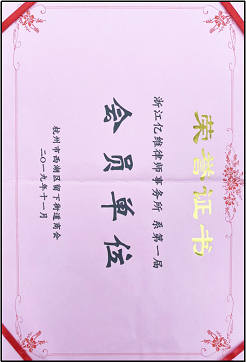 荣誉证书
浙江亿维律师事务所 系第一届
会员单位
杭州市西湖区留下街道商会
二〇一九年十一月